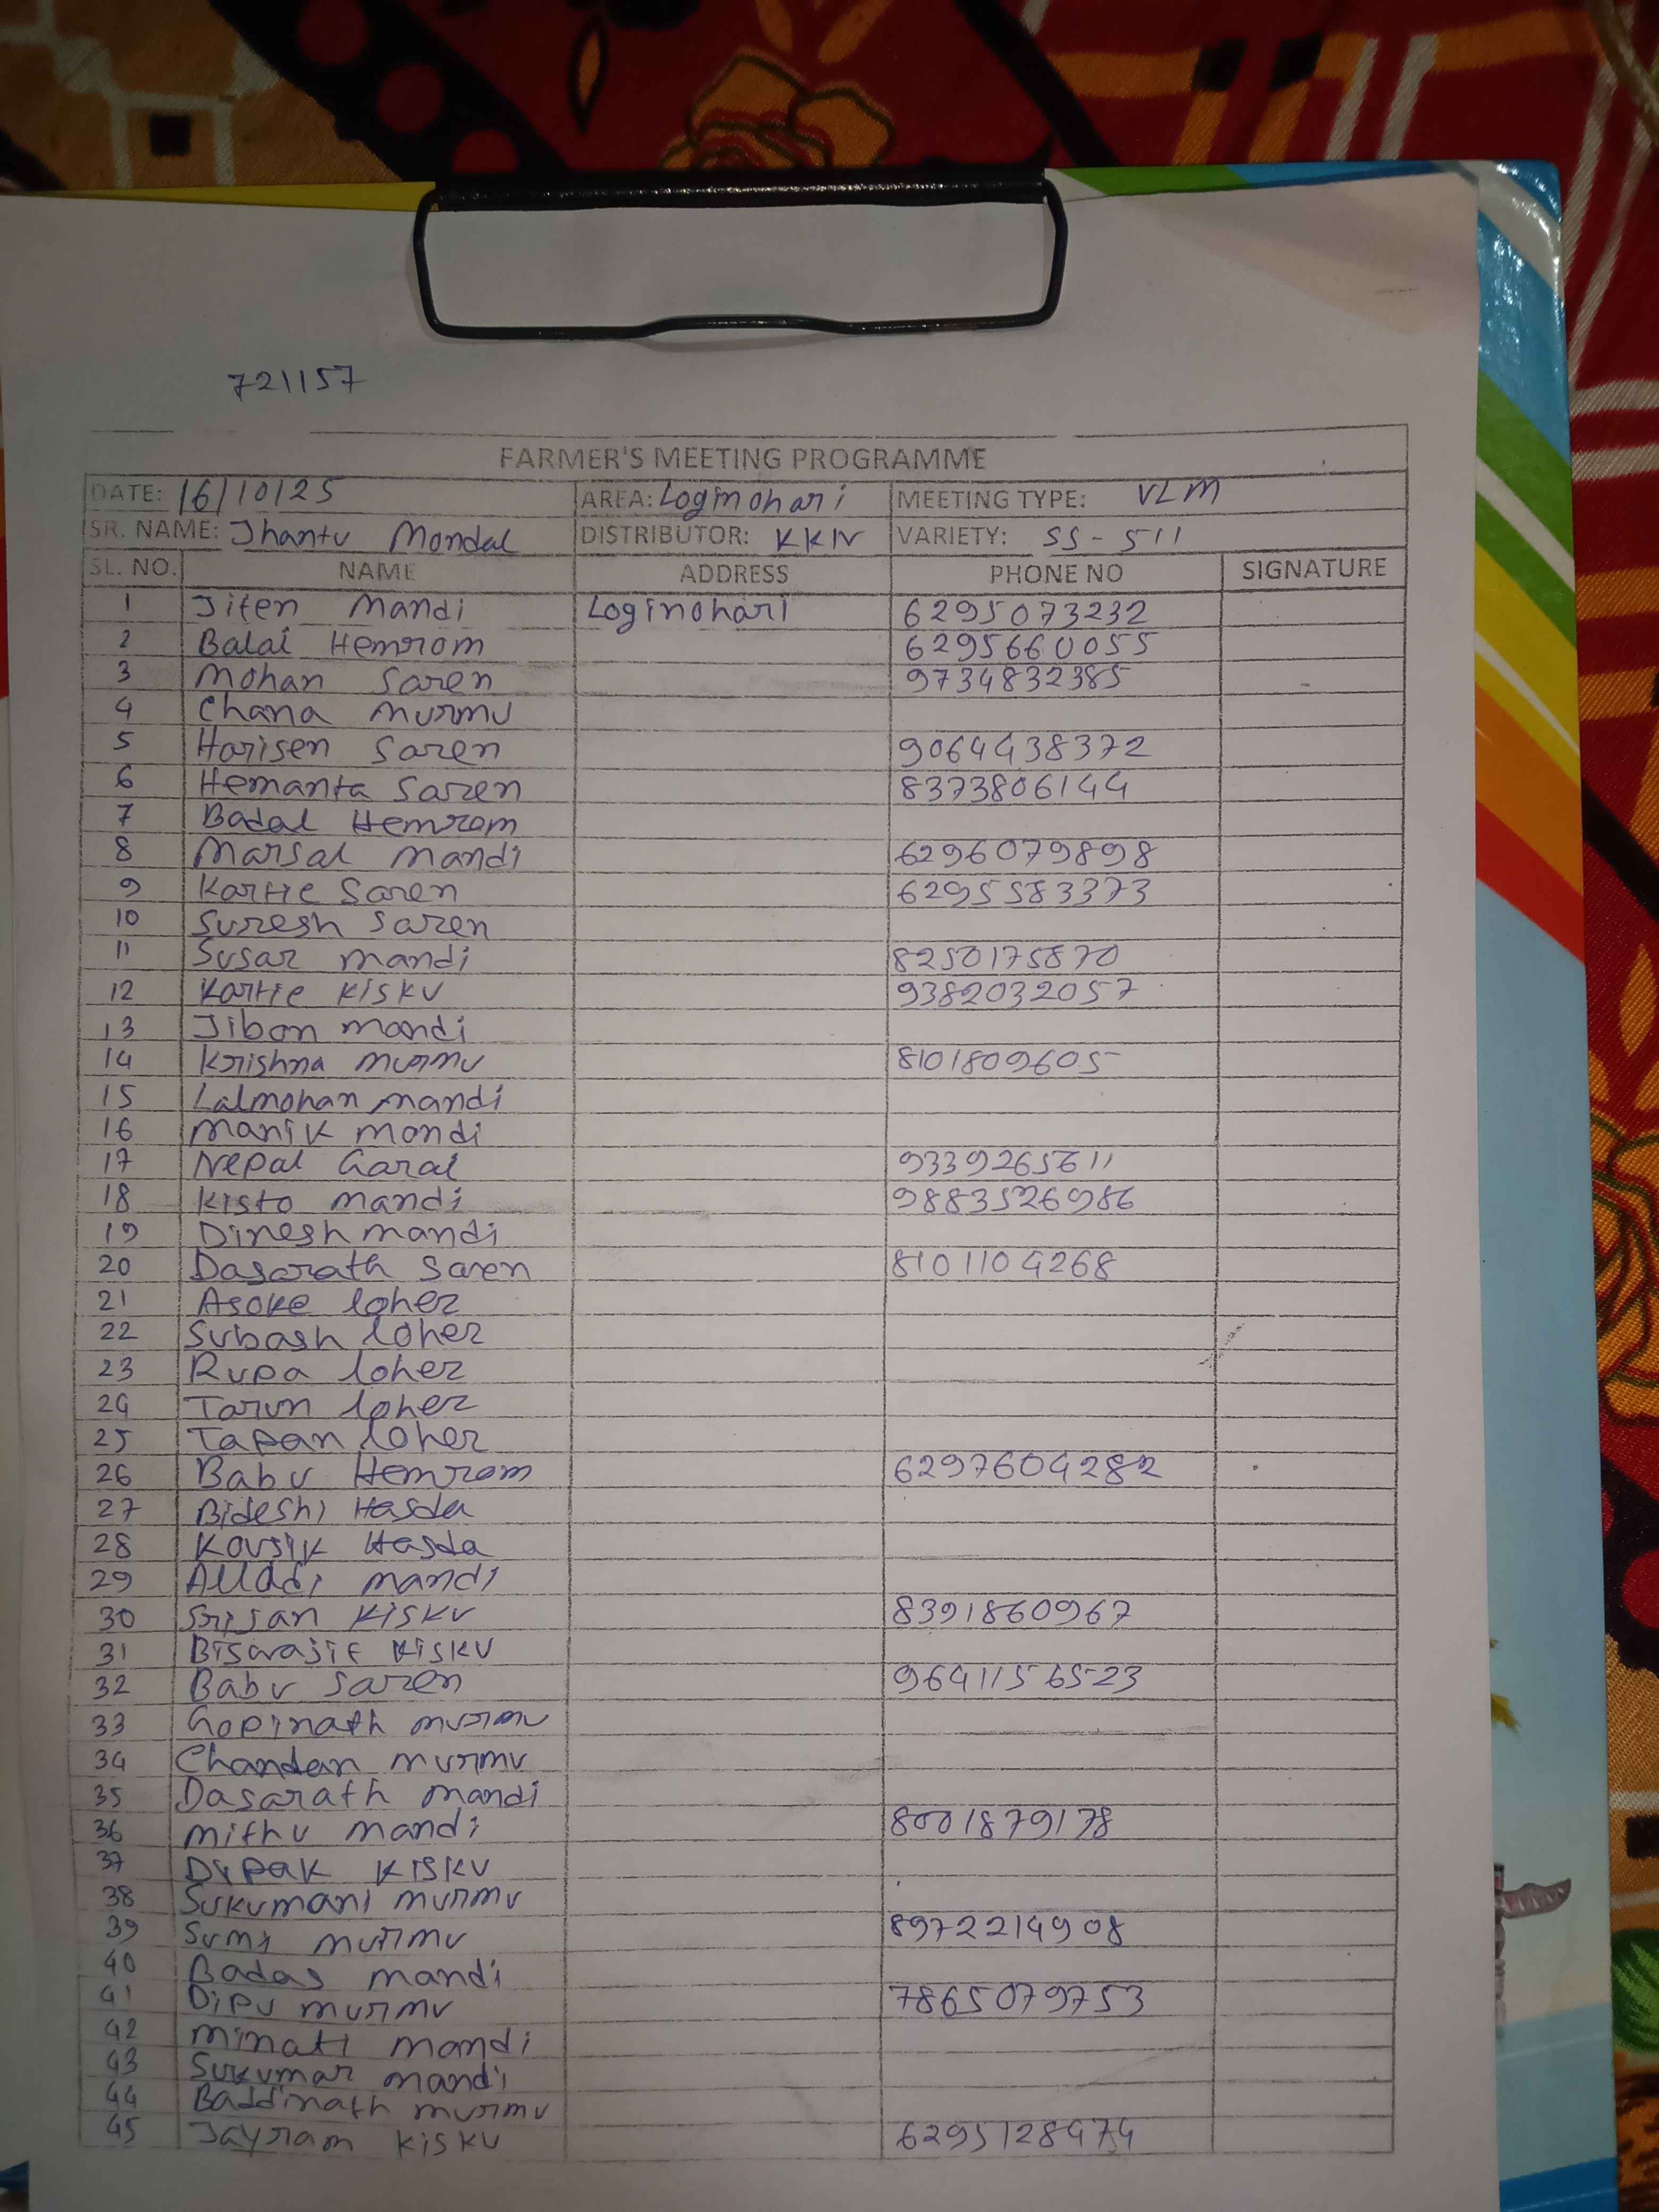 721157
FARMER'S MEETING PROGRAMME
DATE: 16/10/25 AREA: Loginohari MEETING TYPE: VLM
SR. NAME: Jhantu Mondal DISTRIBUTOR: KKN VARIETY: SS-511
SL. NO. NAME ADDRESS PHONE NO SIGNATURE
1 Jiten Mandi Loginohari 6295073232
2 Balai Hemrom 6295660055
3 Mohan Saren 9734832385
4 Chana Murmu
5 Harisen Saren 9064438372
6 Hemanta Saren 8373806144
7 Badal Hemrom
8 Marsal Mandi 6296079898
9 Kartic Saren 6295583373
10 Suresh Saren
11 Susar Mandi 8250175870
12 Kartic Kisku 9382032057
13 Jibon Mandi
14 Krishna Murmu 8101809605
15 Lalmohan Mandi
16 Manik Mandi
17 Nepal Garai 9339265611
18 Kisto Mandi 9883526986
19 Dinesh Mandi
20 Dasarath Saren 8101104268
21 Asoke Loher
22 Subash Loher
23 Rupa Loher
24 Tarun Loher
25 Tapan Loher
26 Babu Hemrom 6297604282
27 Bideshi Hasda
28 Kousik Hasda
29 Alladi Mandi
30 Srijan Kisku 8391860967
31 Biswajit Kisku
32 Babu Saren 9641156523
33 Gopinath Murmu
34 Chandan Murmu
35 Dasarath Mandi
36 Mithu Mandi 8001879178
37 Dipak Kisku
38 Sukumani Murmu
39 Sumi Murmu 8972214908
40 Badas Mandi
41 Dipu Murmu 7865079753
42 Minati Mandi
43 Sukumar Mandi
44 Baddinath Murmu
45 Jayram Kisku 6295128474